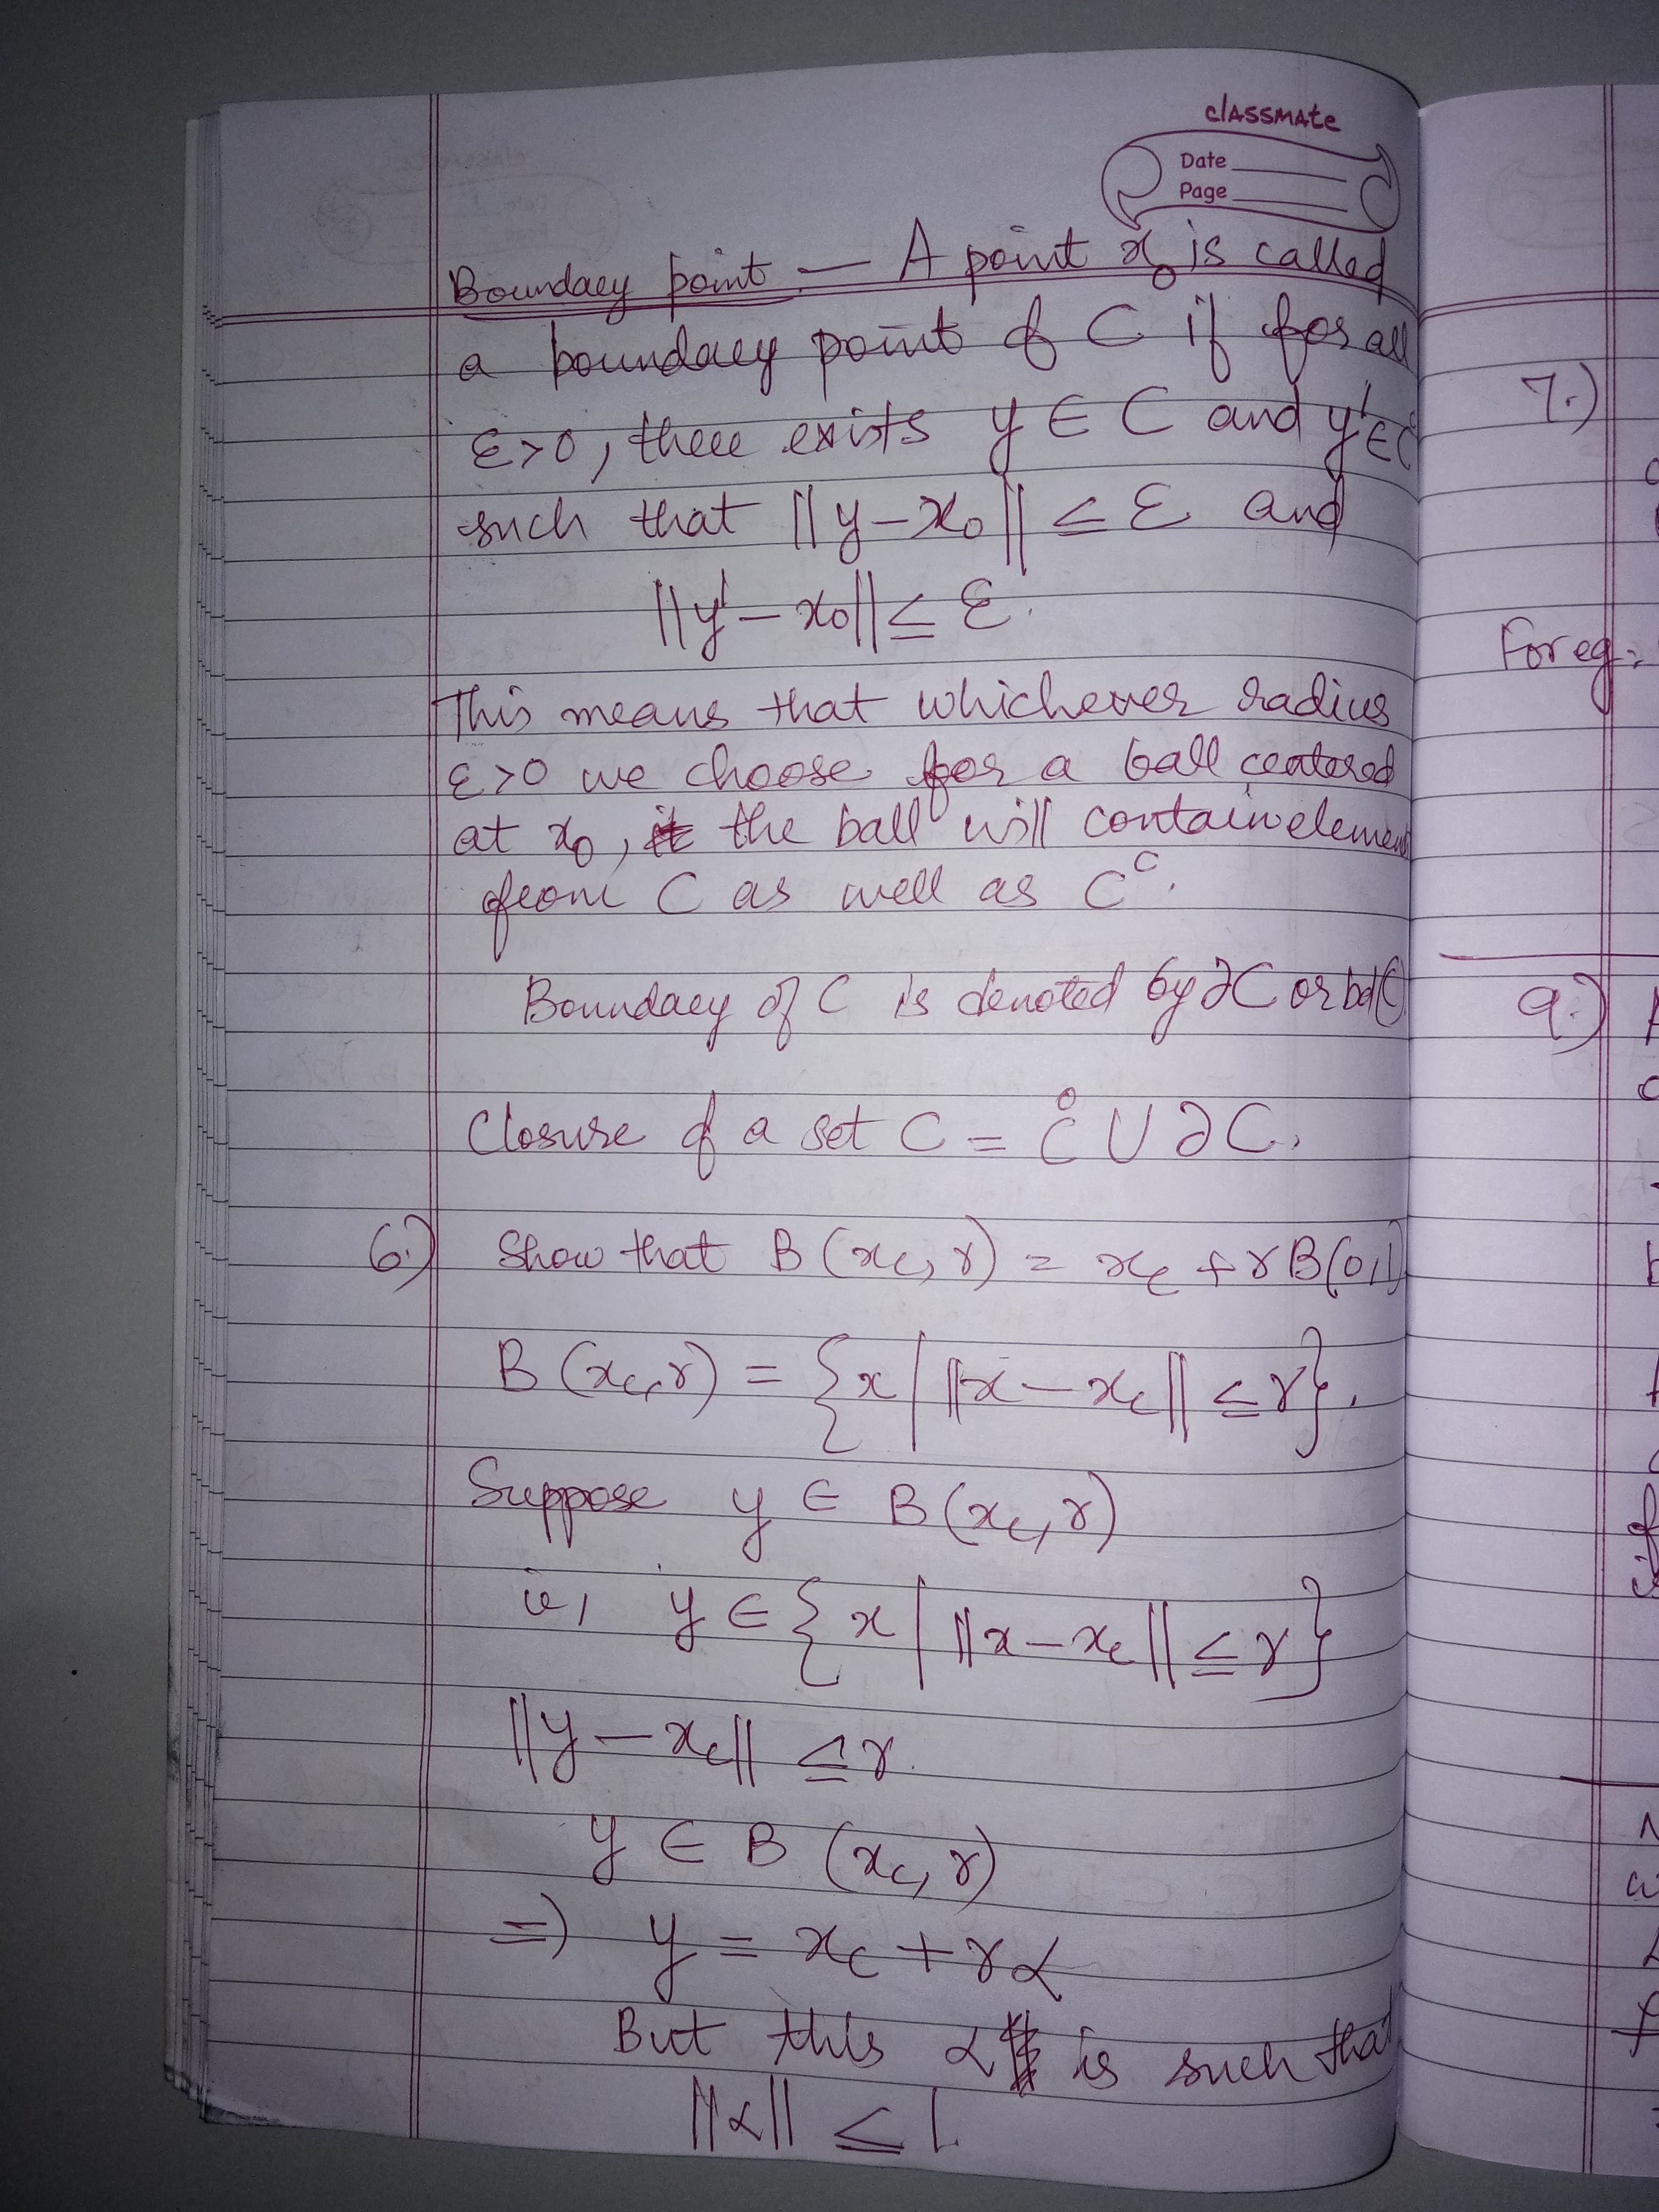 classmate
Date
Page
Boundary point — A point x₀ is called
a boundary point of C if for all
ε>0, there exists y ∈ C and y' ∈ Cᶜ
such that ||y-x₀|| ≤ ε and
||y'-x₀|| ≤ ε.
This means that whichever radius
ε>0 we choose for a ball centered
at x₀, the ball will contain element
from C as well as Cᶜ.
Boundary of C is denoted by ∂C or bd C
Closure of a set C = C̊ ∪ ∂C.
6.) Show that B(x_c, r) = x_c + rB(0,1)
B(x_c, r) = {x | ||x-x_c|| ≤ r}.
Suppose y ∈ B(x_c, r)
ie, y ∈ {x | ||x-x_c|| ≤ r}
||y-x_c|| ≤ r.
y ∈ B (x_c, r)
⇒ y = x_c + rα
But this α is such that
||α|| ≤ 1.
7.)
For eg:
9.)